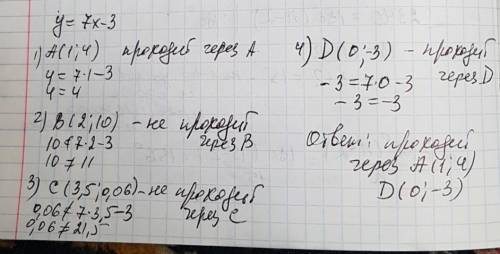 y = 7x-3
1) A(1; 4) проходит через A
4 = 7·1-3
4 = 4
2) B(2; 10) - не проходит
через B
10 ≠ 7·2-3
10 ≠ 11
3) C(3,5; 0,06) - не проходит
через C
0,06 ≠ 7·3,5-3
0,06 ≠ 21,5
4) D(0; -3) - проходит
через D
-3 = 7·0-3
-3 = -3
Ответ: проходит
через A(1; 4)
D(0; -3)